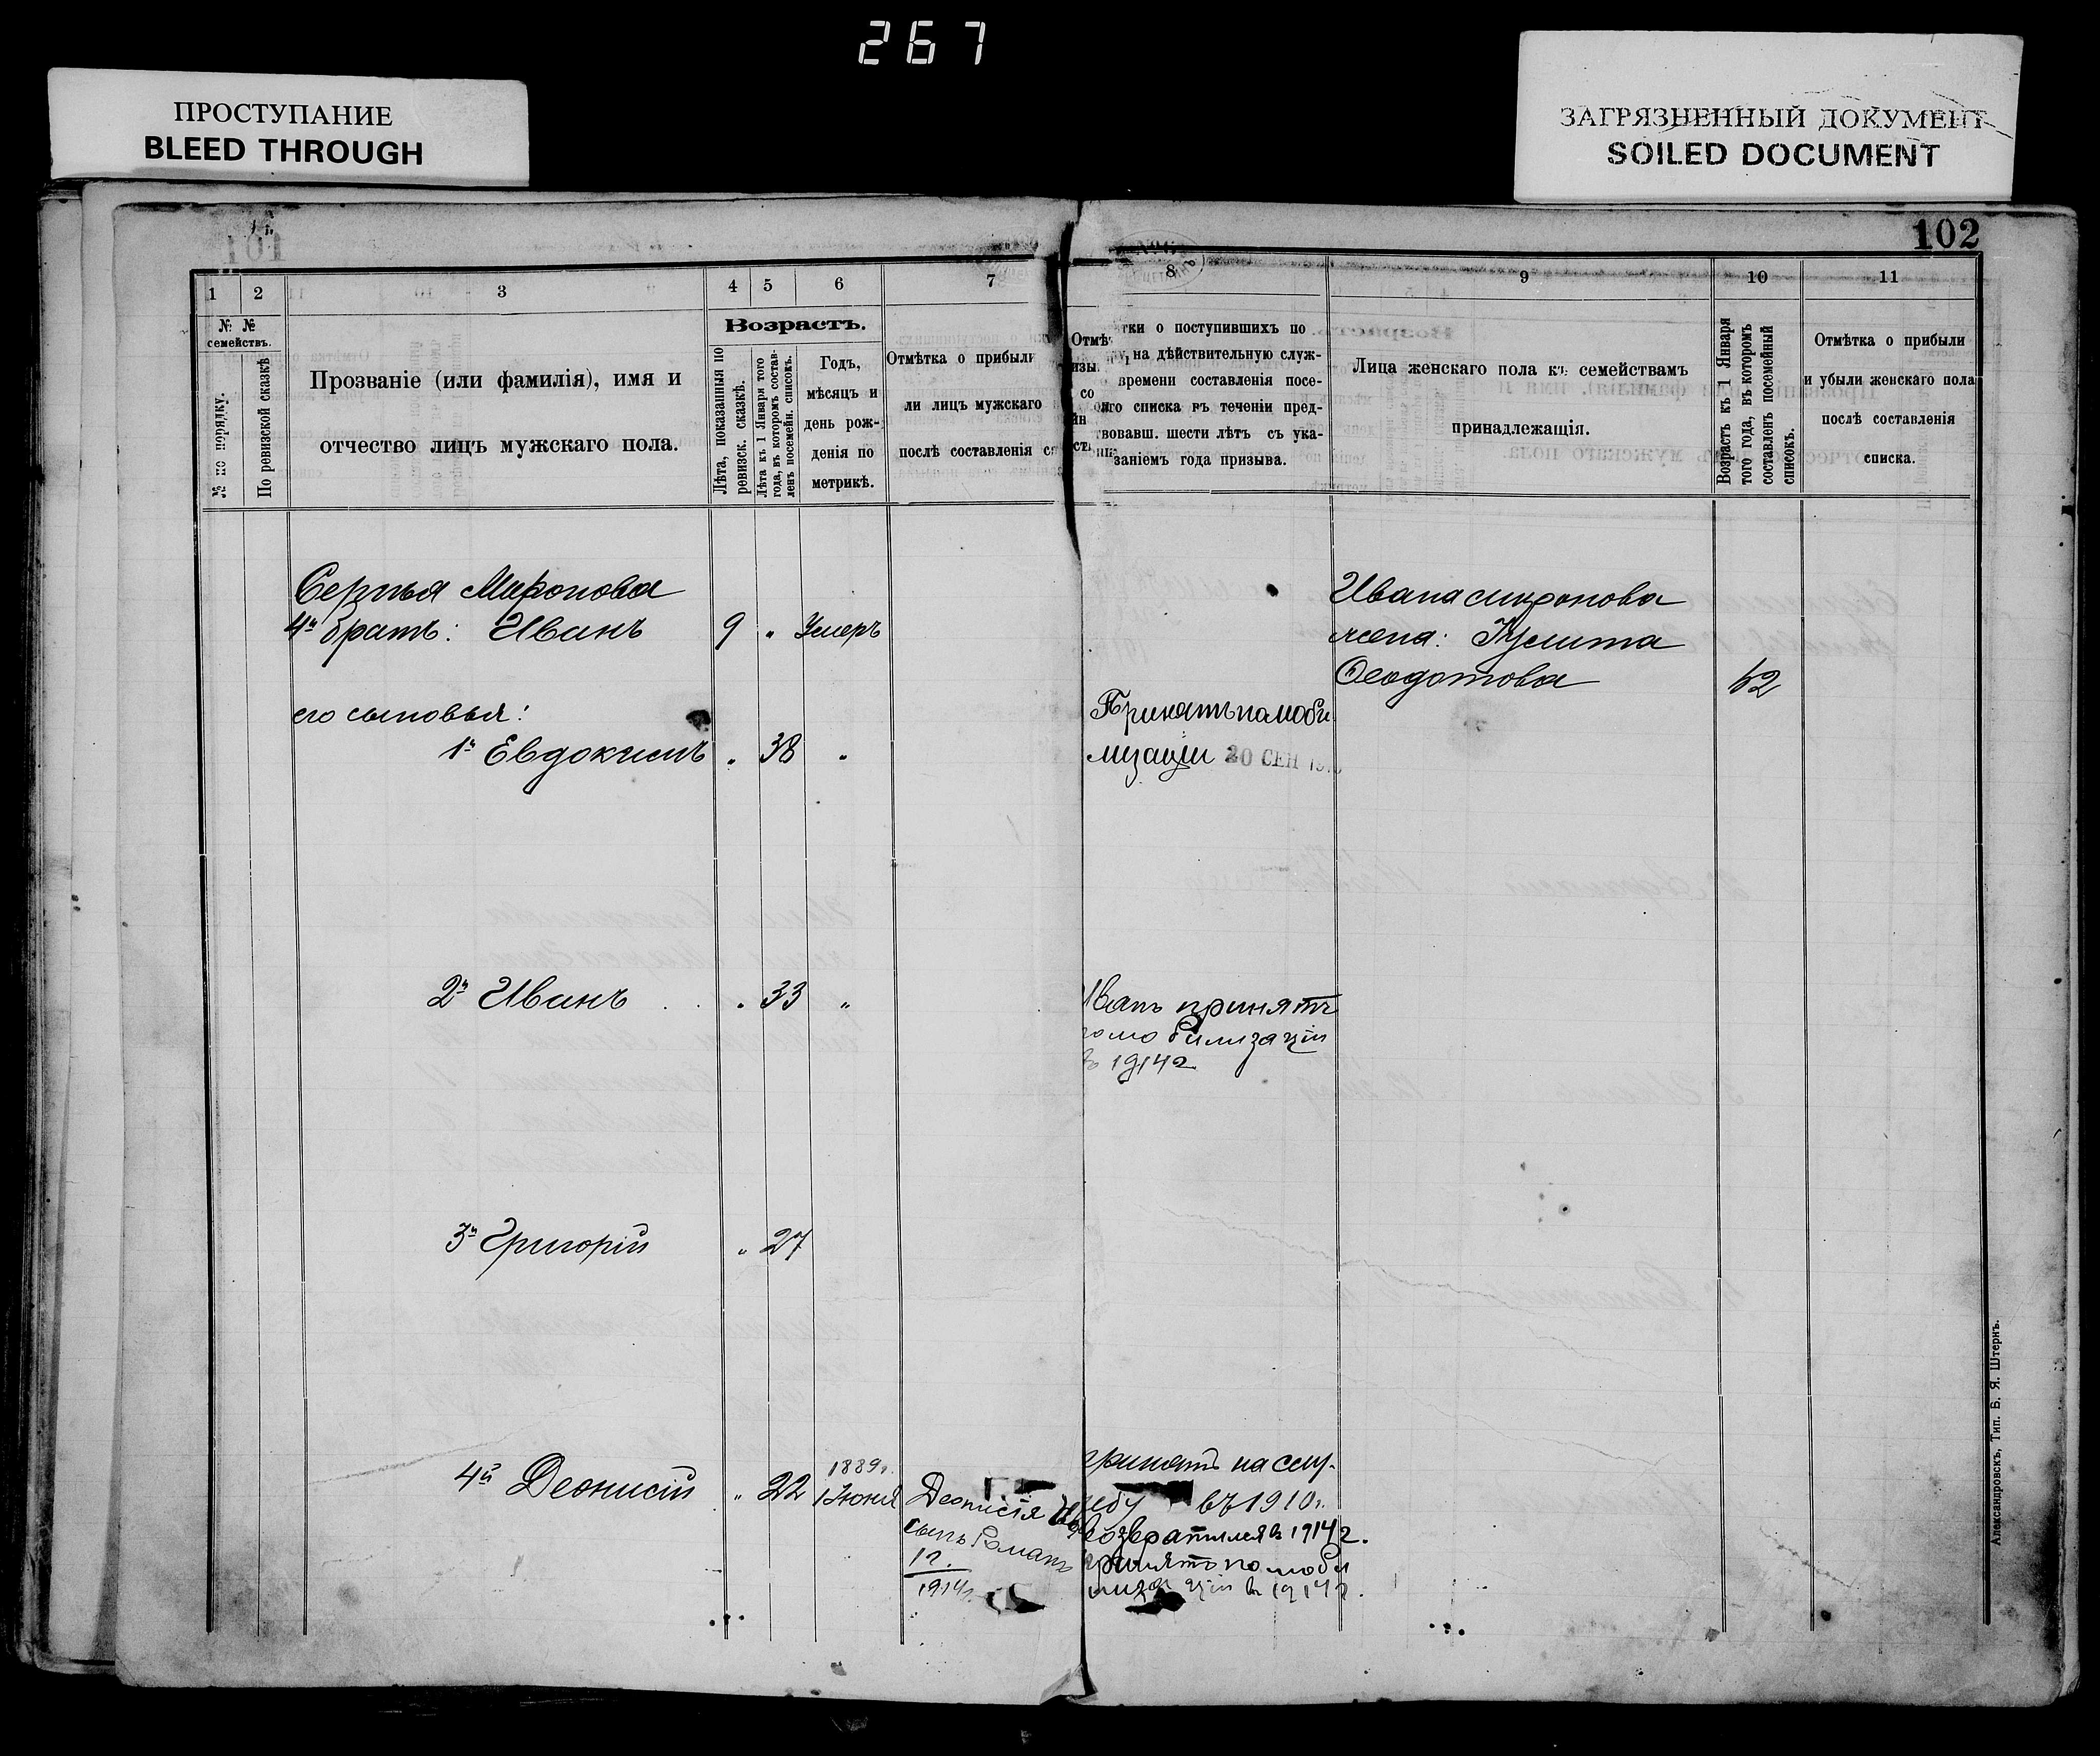 267
ПРОСТУПАНИЕ
BLEED THROUGH
ЗАГРЯЗНЕННЫЙ ДОКУМЕНТ
SOILED DOCUMENT
102
1 2 3 4 5 6 7 8 9 10 11
№ №
семействъ.
№ по порядку.
По ревизской сказкѣ
Прозваніе (или фамилія), имя и
отчество лицъ мужскаго пола.
Возрастъ.
Лѣта, показанныя по
ревизск. сказкѣ.
Лѣта къ 1 Января того
года, въ которомъ состав-
ленъ посемейн. списокъ.
Годъ,
мѣсяцъ и
день рож-
денія по
метрикѣ.
Отмѣтка о прибыли
ли лицъ мужскаго
послѣ составленія
тки о поступившихъ по
на дѣйствительную служ-
времени составленія посе-
списка въ теченіи пред-
вовавш. шести лѣтъ съ ука-
заніемъ года призыва.
Лица женскаго пола къ семействамъ
принадлежащія.
Возрастъ къ 1 Января
того года, въ которомъ
составленъ посемейный
списокъ.
Отмѣтка о прибыли
и убыли женскаго пола
послѣ составленія
списка.
Сергѣя Миронова
4й братъ: Иванъ 9 " Умеръ
Ивана Миронова
жена:
Феодотова 52
его сыновья:
1й Евдокимъ " 38 "
Принятъ по моби
лизаціи 20 СЕН
2й Иванъ " 33 "
Иванъ принятъ
по мобилизаціи
въ 1914 г.
3й Григорій " 27
4й Деонисій " 22 1889г.
1 Июня
Деонисія
сынъ Романъ
1 г.
1914г.
принятъ на слу-
жбу въ 1910г.
возвратился въ 1914 г.
принятъ по моби
лизаціи въ 1914 г.
Александровскъ, Тип. Б. Я. Штернъ.